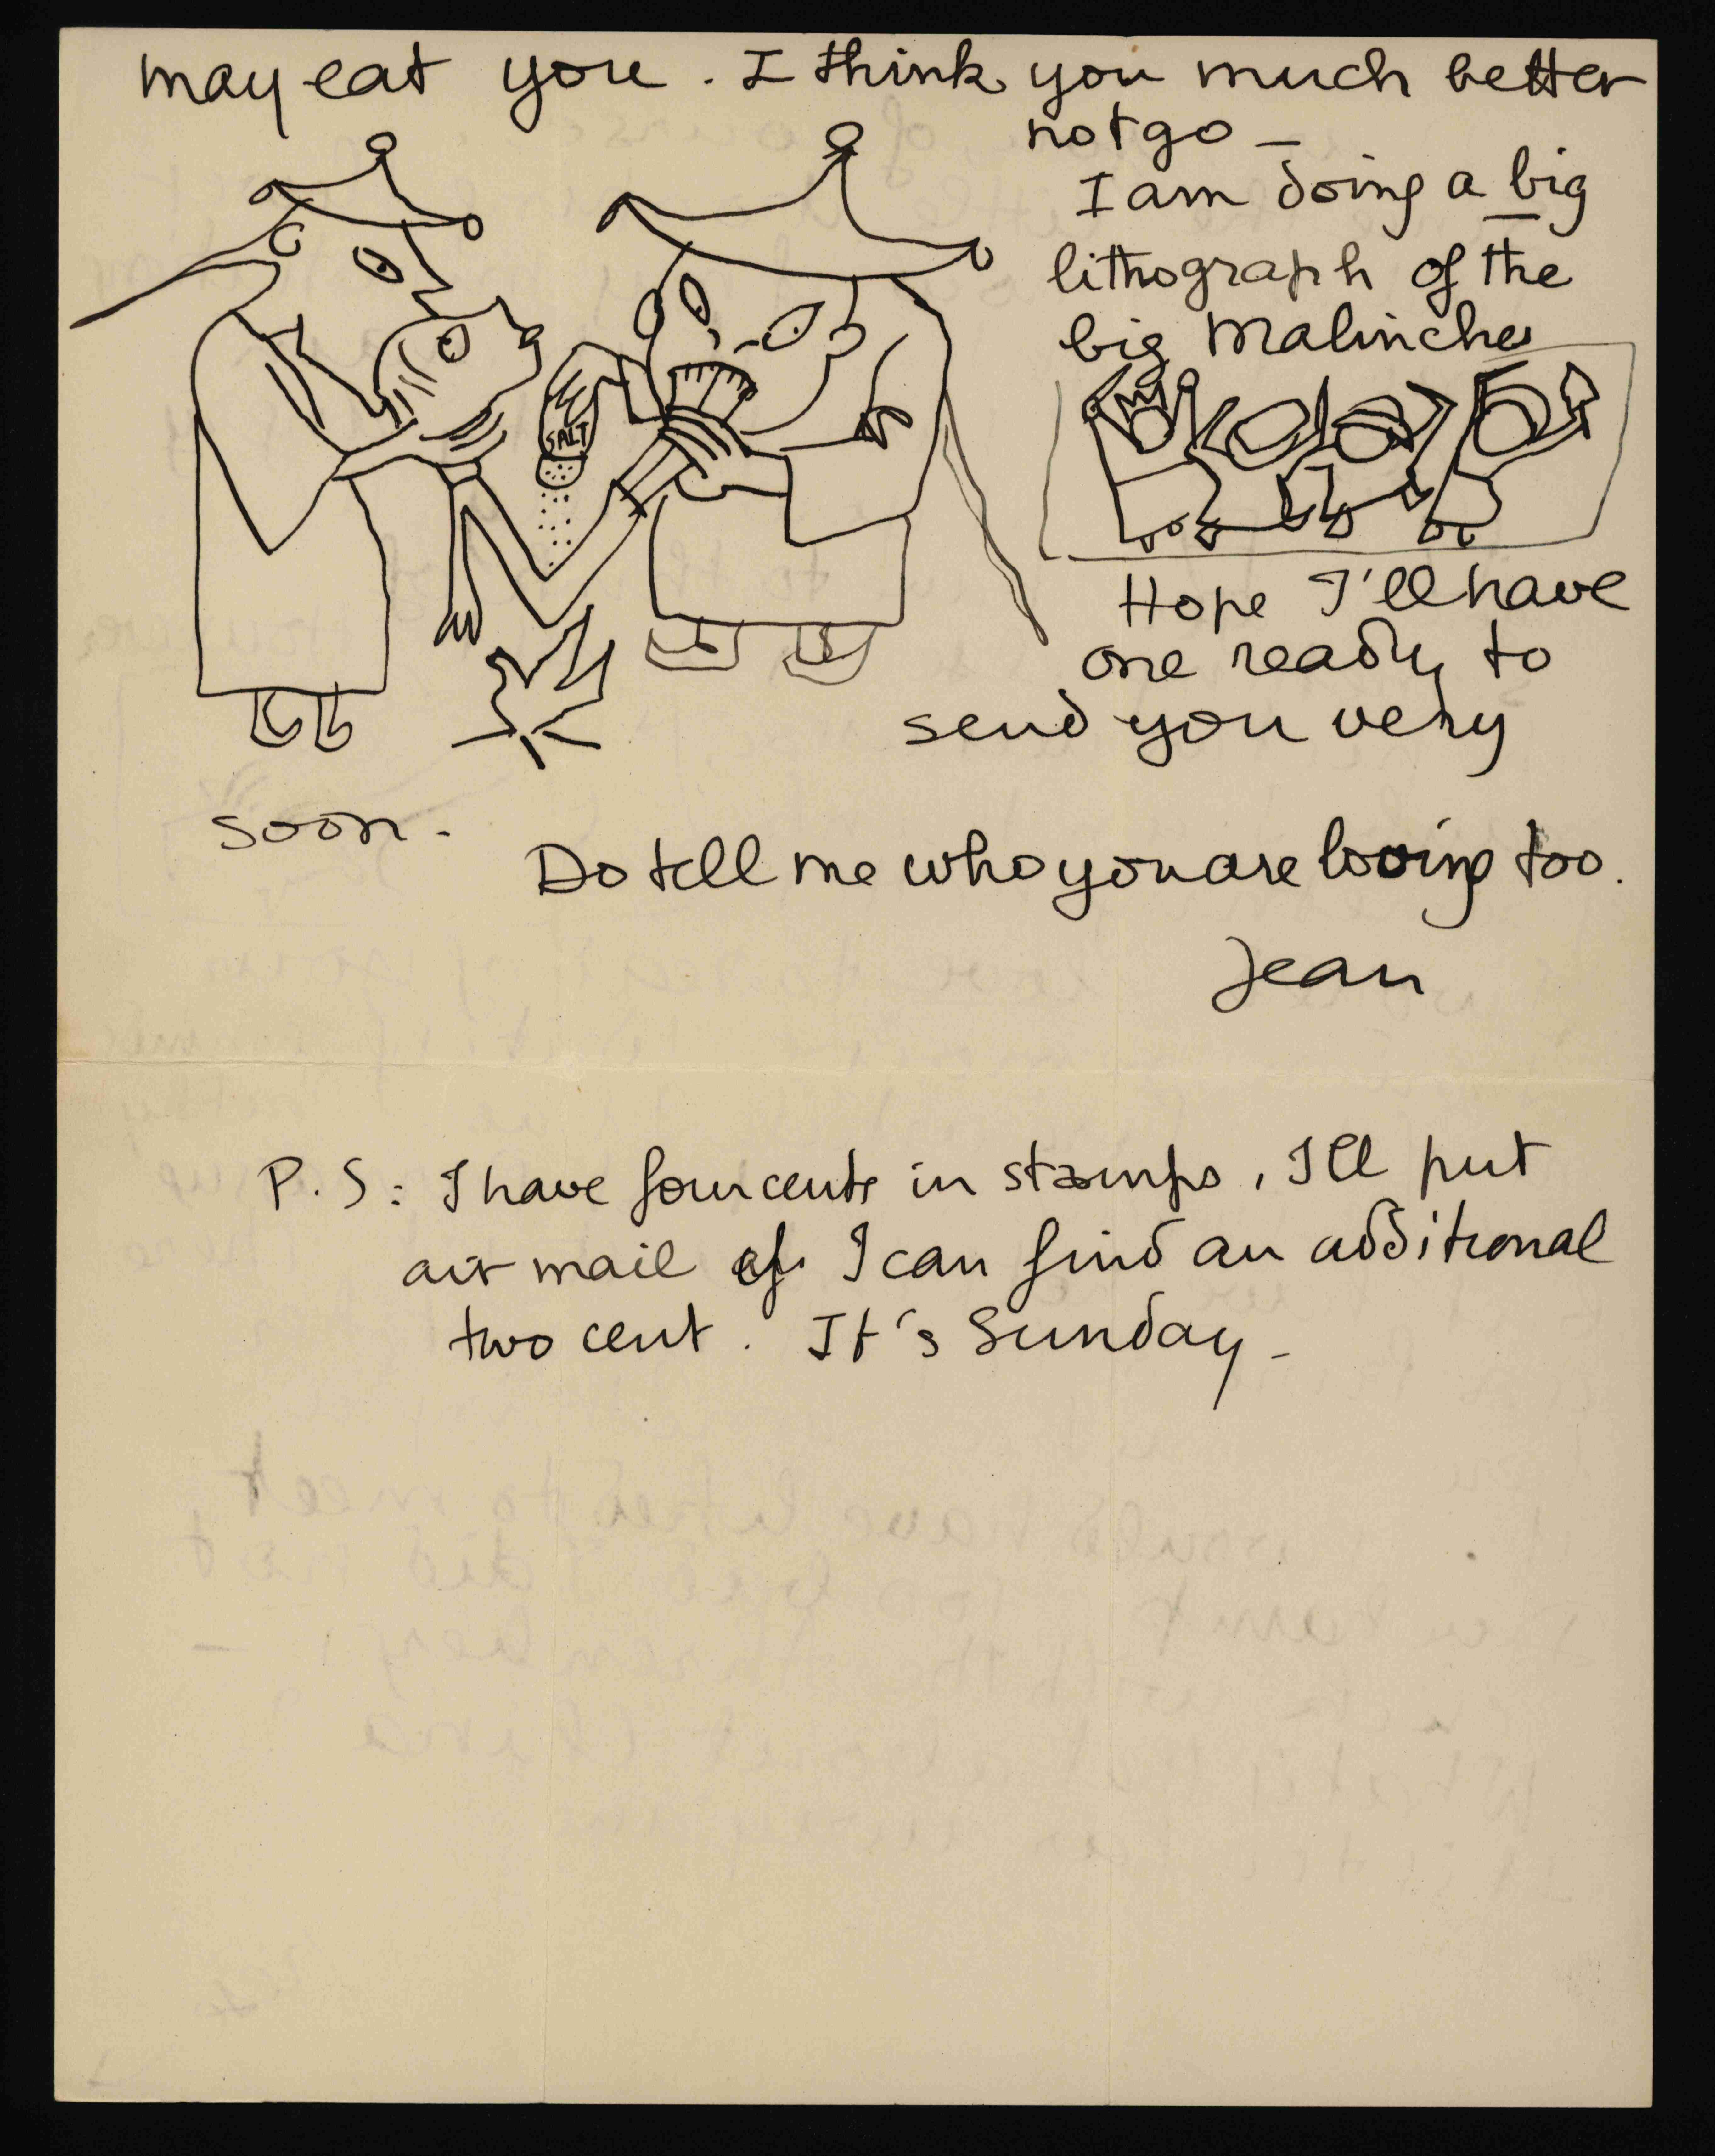 may eat you. I think you much better
not go –
I am doing a big
lithograph of the
big Malinches
SALT
Hope I'll have
one ready to
send you very
soon.
Do tell me who you are loving too.
Jean
P.S: I have four cents in stamps, I'll put
air mail if I can find an additional
two cent. It's Sunday –